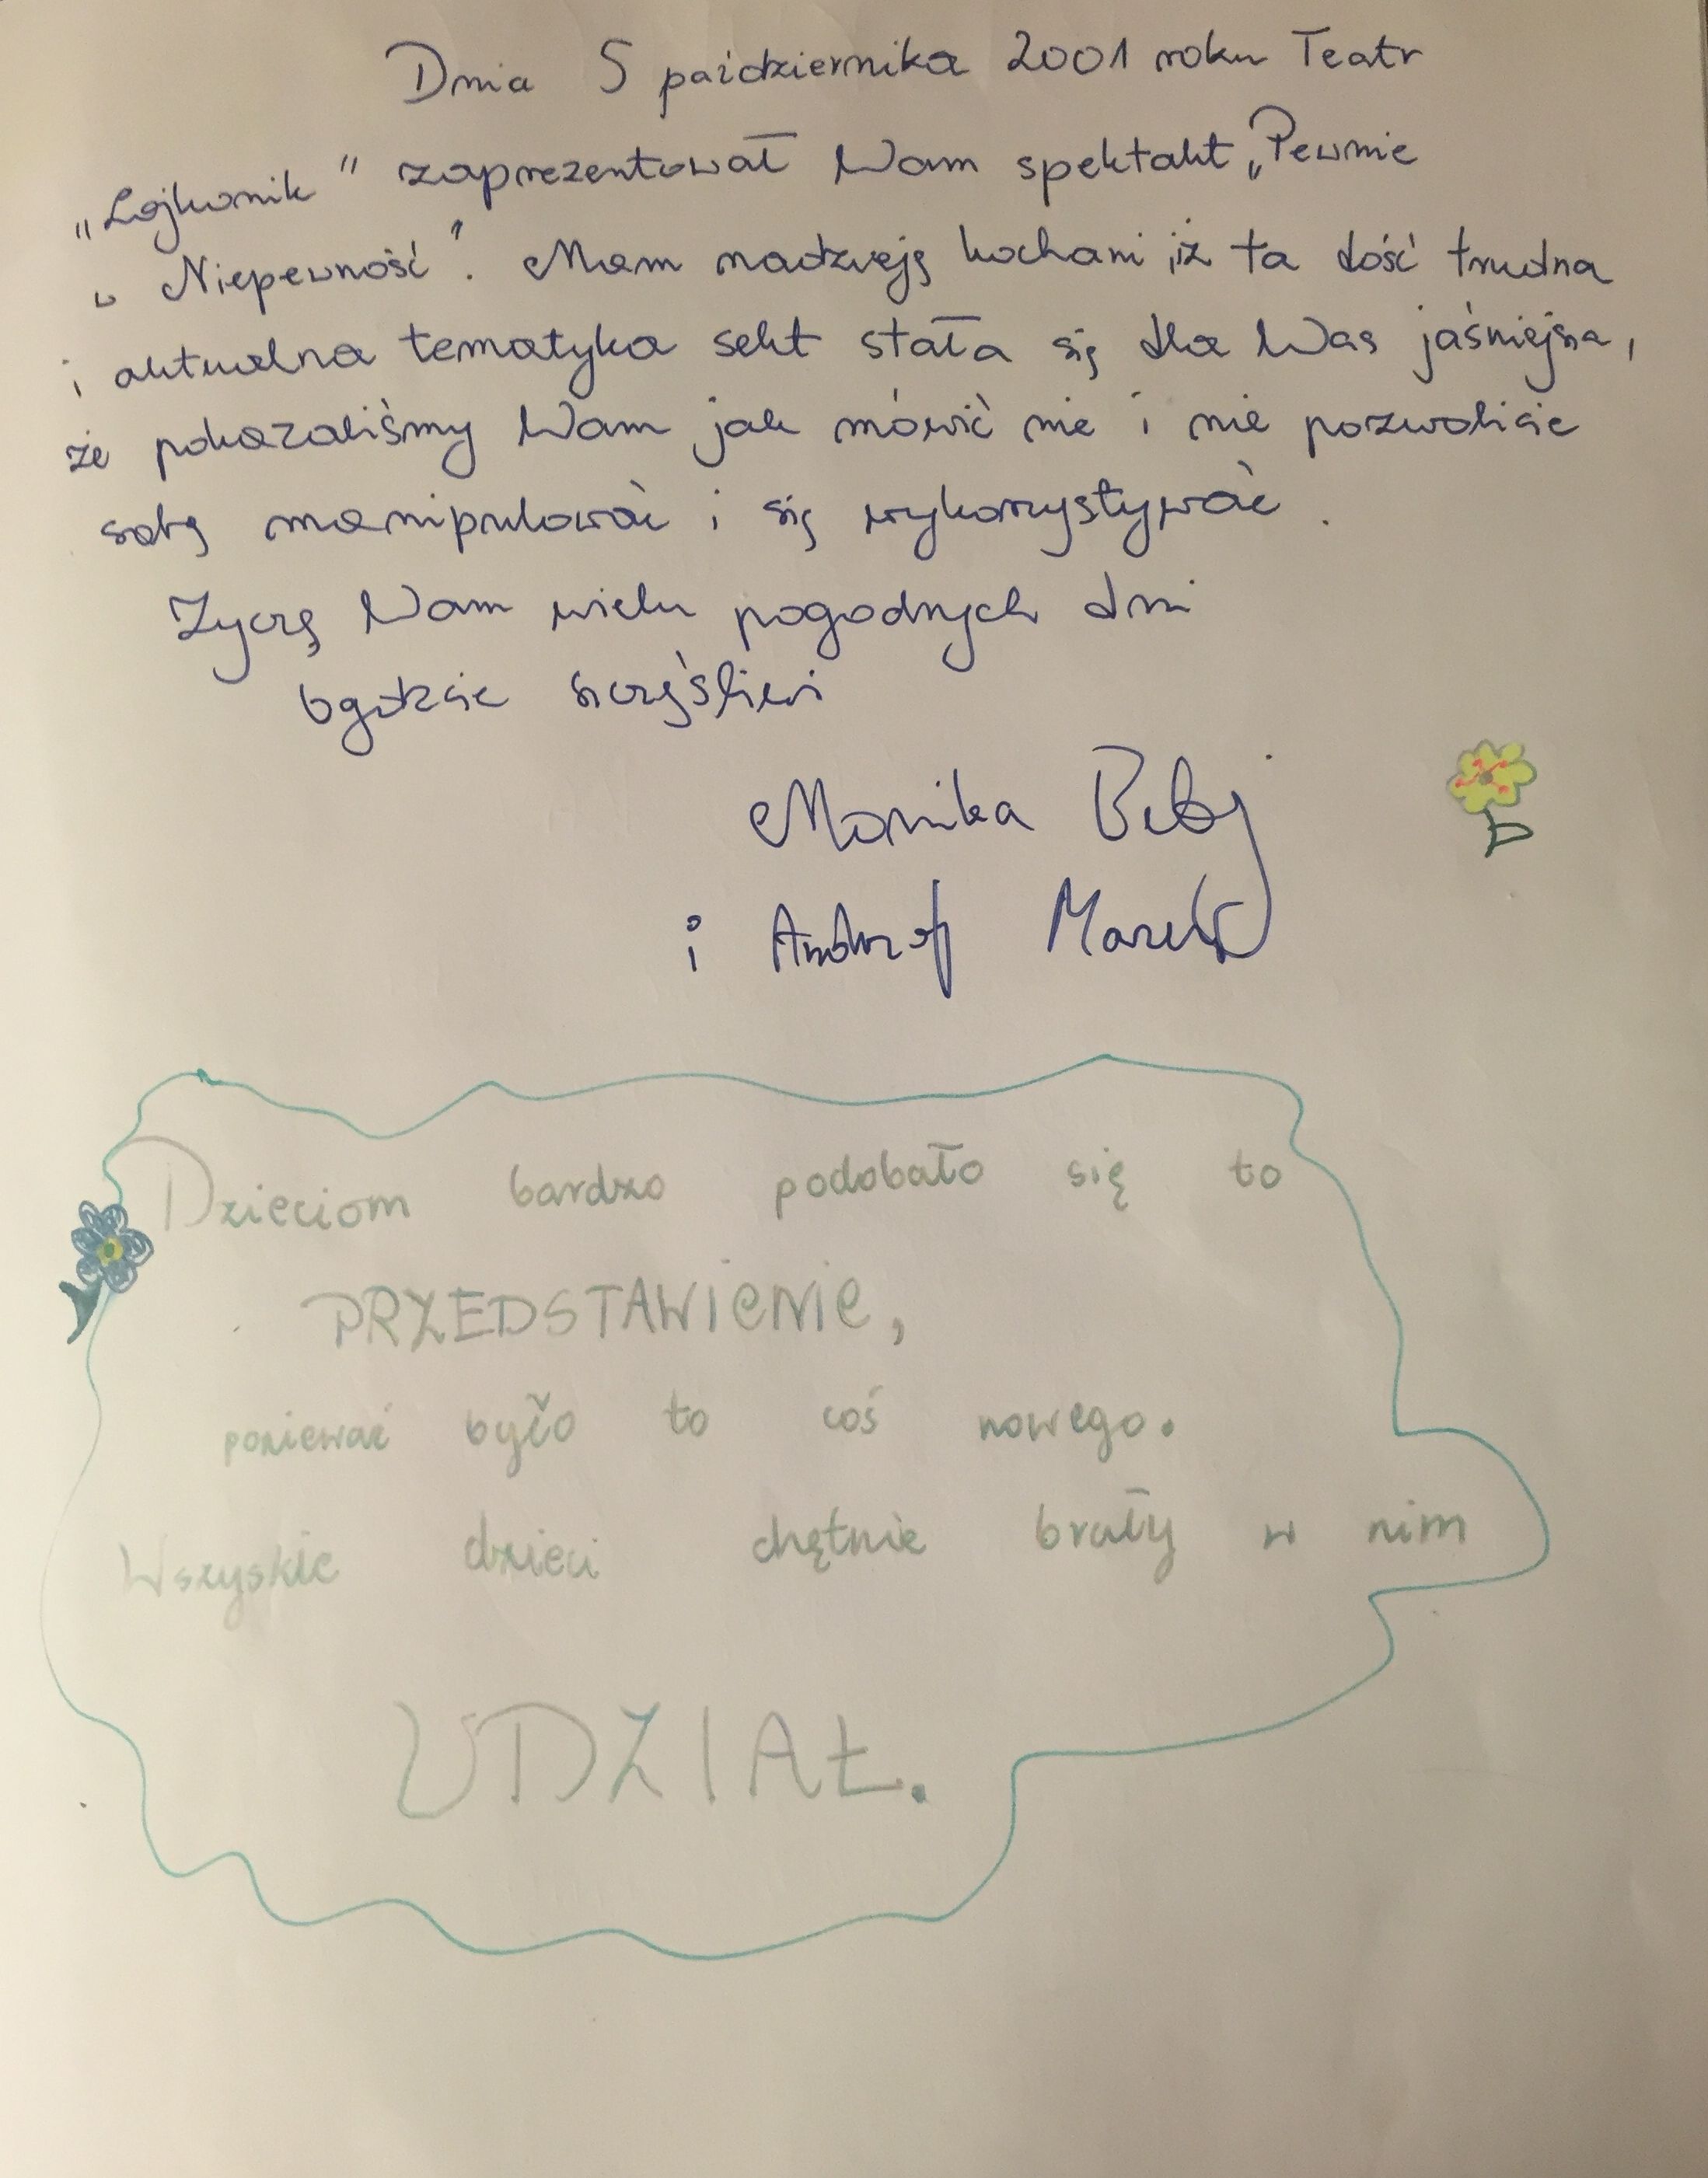 Dnia 5 października 2001 roku Teatr
„Lajkonik" zaprezentował Wam spektakl „Pewnie
w Niepewność". Mam nadzieję kochani, iż ta dość trudna
i aktualna tematyka sekt stała się dla Was jaśniejsza,
że pokazaliśmy Wam jak mówić nie i nie pozwolicie
sobą manipulować i się wykorzystywać.
Życzę Wam wielu pogodnych dni
bądźcie szczęśliwi
Monika
i Andrzej Marek
Dzieciom bardzo podobało się to
PRZEDSTAWIENIE,
ponieważ było to coś nowego.
Wszyskie dzieci chętnie brały w nim
UDZIAŁ.